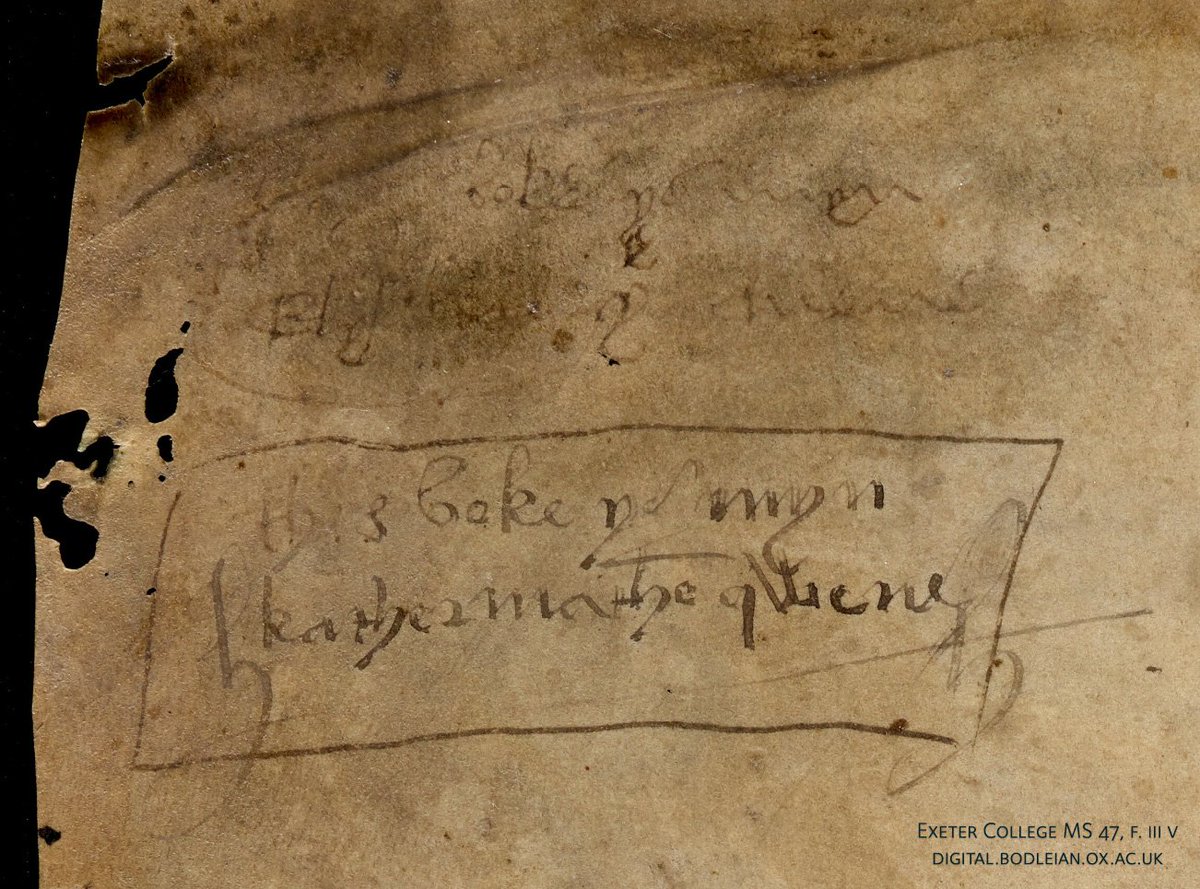 boke ys myn
thys boke ys myn
katherina the qwene
Exeter College MS 47, f. iii v
digital.bodleian.ox.ac.uk